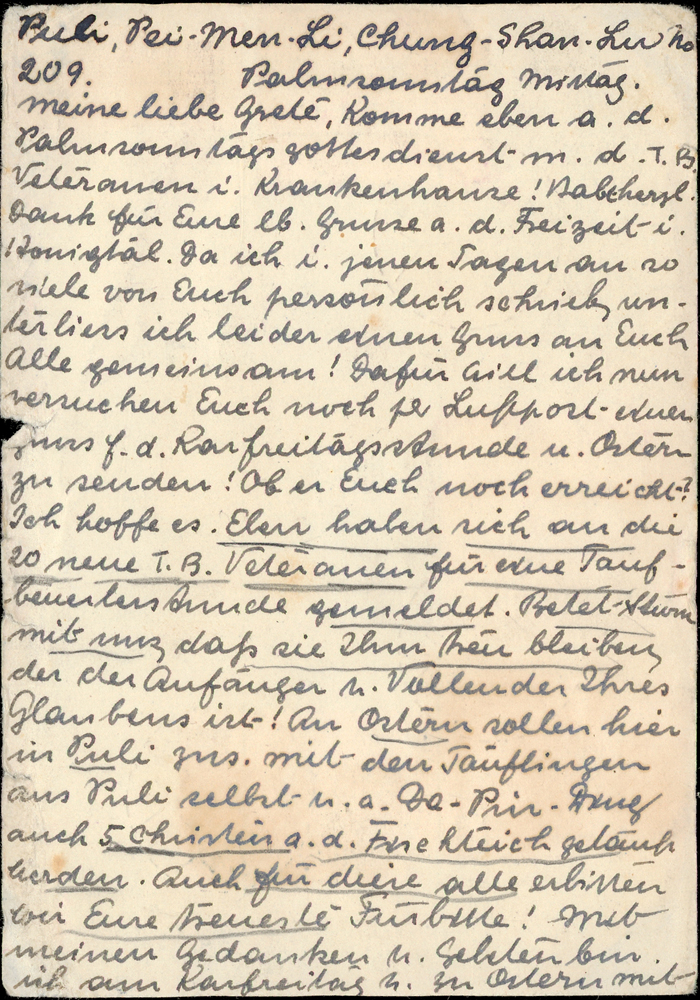 Puli, Pei-Men-Li, Chung-Shan-Lu No
209. Palmsonntag Mittag.
meine liebe Grete, Komme eben a. d.
Palmsonntagsgottesdienst m. d. T. B.
Veteranen i. Krankenhause! Habt herzl.
Dank für Eure lb. Grüsse a. d. Freizeit i.
Honigtal. Da ich i. jenen Tagen an so
viele von Euch persönlich schrieb, un-
terliess ich leider einen Gruss an Euch
Alle gemeinsam! Dafür will ich nun
versuchen Euch noch per Luftpost einen
Gruss f. d. Karfreitagsstunde u. Ostern
zu senden! Ob er Euch noch erreicht?
Ich hoffe es. Eben haben sich an die
20 neue T. B. Veteranen für eine Tauf-
bewerberstunde gemeldet. Betet Sturm
mit uns, daß sie Ihm treu bleiben,
der der Anfänger u. Vollender Ihres
Glaubens ist! An Ostern sollen hier
in Puli zus. mit den Täuflingen
aus Puli selbst u. a.
auch 5 Christen a. d. Fischteich getauft
werden. Auch für diese alle erbitten
wir Eure treueste Fürbitte! Mit
meinen Gedanken u. Gebeten bin
ich am Karfreitag u. zu Ostern mit